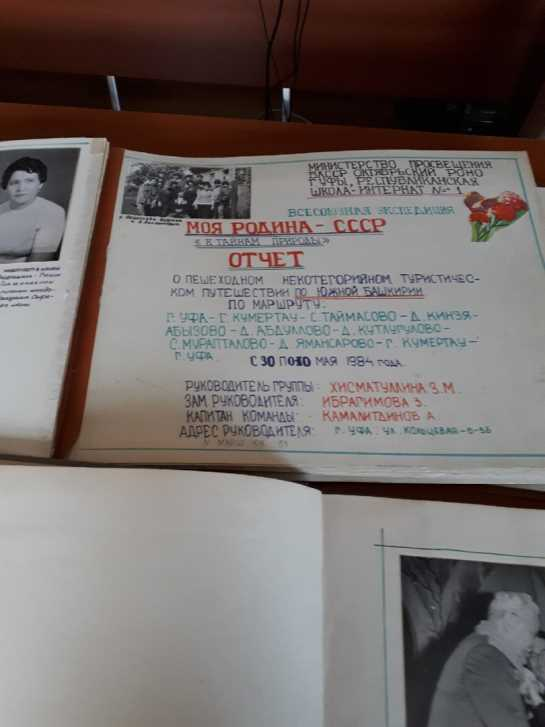 МИНИСТЕРСТВО ПРОСВЕЩЕНИЯ
БАССР ОКТЯБРЬСКИЙ РОНО
Г.УФЫ, РЕСПУБЛИКАНСКАЯ
ШКОЛА-ИНТЕРНАТ №1
ВСЕСОЮЗНАЯ ЭКСПЕДИЦИЯ
МОЯ РОДИНА - СССР
«К ТАЙНАМ ПРИРОДЫ»
ОТЧЕТ
О ПЕШЕХОДНОМ НЕКОТЕГОРИЙНОМ ТУРИСТИЧЕС-
КОМ ПУТЕШЕСТВИИ ПО ЮЖНОЙ БАШКИРИИ
ПО МАРШРУТУ:
Г. УФА - Г. КУМЕРТАУ - С. ТАЙМАСОВО - Д. КИНЗЯ-
АБЫЗОВО - Д. АБДУЛЛОВО - Д. КУТЛУГУЛОВО -
С. МУРАПТАЛОВО - Д. ЯМАНСАРОВО - Г. КУМЕРТАУ -
Г. УФА.
С 30 ПО 10 МАЯ 1984 ГОДА.
РУКОВОДИТЕЛЬ ГРУППЫ: ХИСМАТУЛЛИНА З.М.
ЗАМ РУКОВОДИТЕЛЯ: ИБРАГИМОВА Э.
КАПИТАН КОМАНДЫ: КАМАЛИТДИНОВ А.
АДРЕС РУКОВОДИТЕЛЯ: Г. УФА. УЛ. КОЛЬЦЕВАЯ